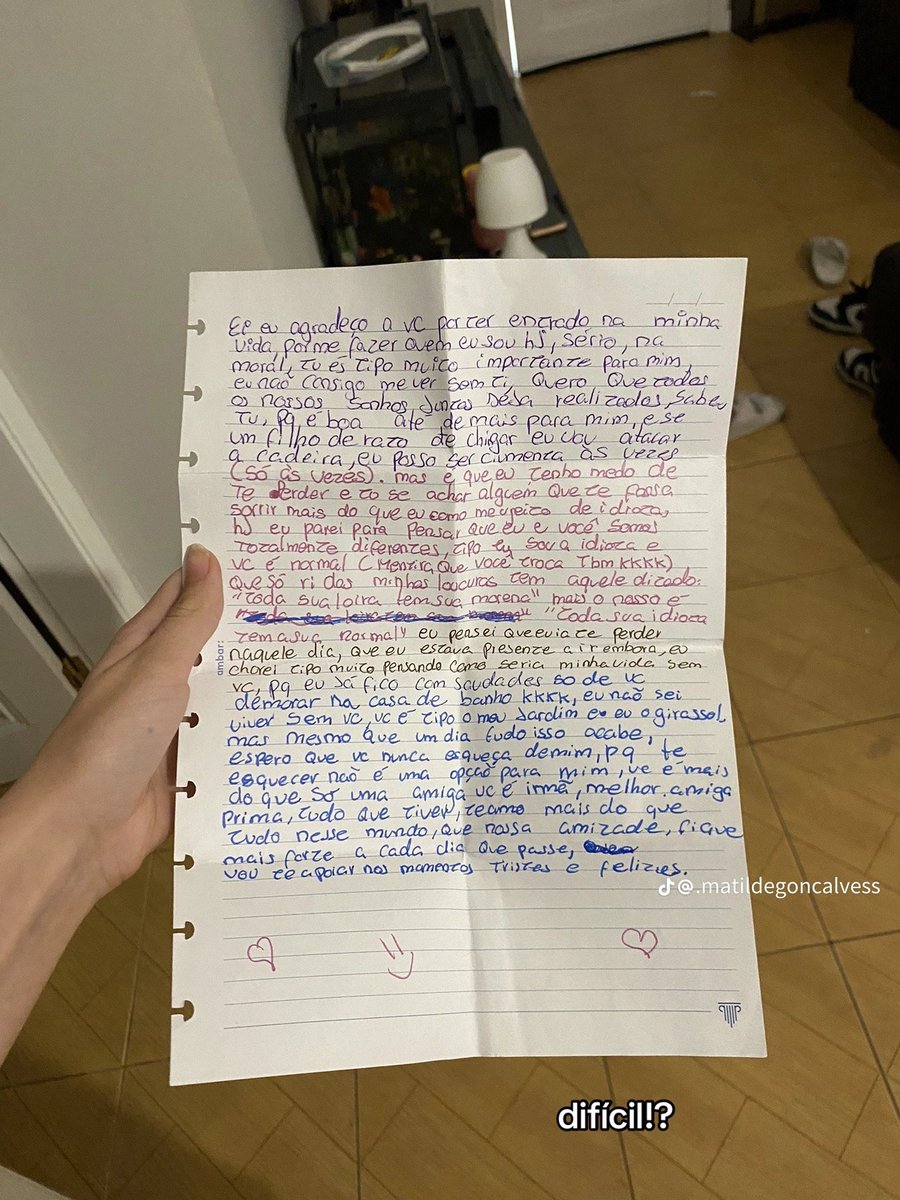 Ee eu agradeço a vc por ter entrado na minha
vida, por me fazer quem eu sou hj, sério, na
moral, tu és tipo muito importante para mim,
eu não consigo me ver sem ti, quero que todos
os nossos sonhos juntas seja realizados, sabeu
tu, pq é boa até demais para mim, e se
um filho de rato de chigar eu vou atacar
a cadeira, eu posso ser ciumenta às vezes
(só às vezes). mas é que eu tenho medo de
te perder e tu se achar alguém que te fassa
sorrir mais do que eu como meu jeito de idiota,
hj eu parei para pensar que eu e você somos
totalmente diferentes, tipo eu sou a idiota e
vc é normal (mentira que você troca tbm kkkk)
que só ri das minhas loucuras tem aquele ditado:
"toda sua loira tem sua morena" mais o nosso é
"toda sua idiota
tem a sua normal" eu pensei que eu ia te perder
naquele dia, que eu estava presente a ir embora, eu
chorei tipo muito pensando como seria minha vida sem
vc, pq eu já fico com saudades só de vc
demorar na casa de banho kkkk, eu não sei
viver sem vc, vc é tipo o meu jardim e eu o girassol,
mas mesmo que um dia tudo isso acabe,
espero que vc nunca esqueça de mim, pq te
esquecer não é uma opção para mim, vc é mais
do que só uma amiga vc é irmã, melhor amiga
prima, tudo que tiver, te amo mais do que
tudo nesse mundo, que nossa amizade, fique
mais forte a cada dia que passe,
vou te apoiar nos momentos tristes e felizes.
ambar
@.matildegoncalvess
difícil!?